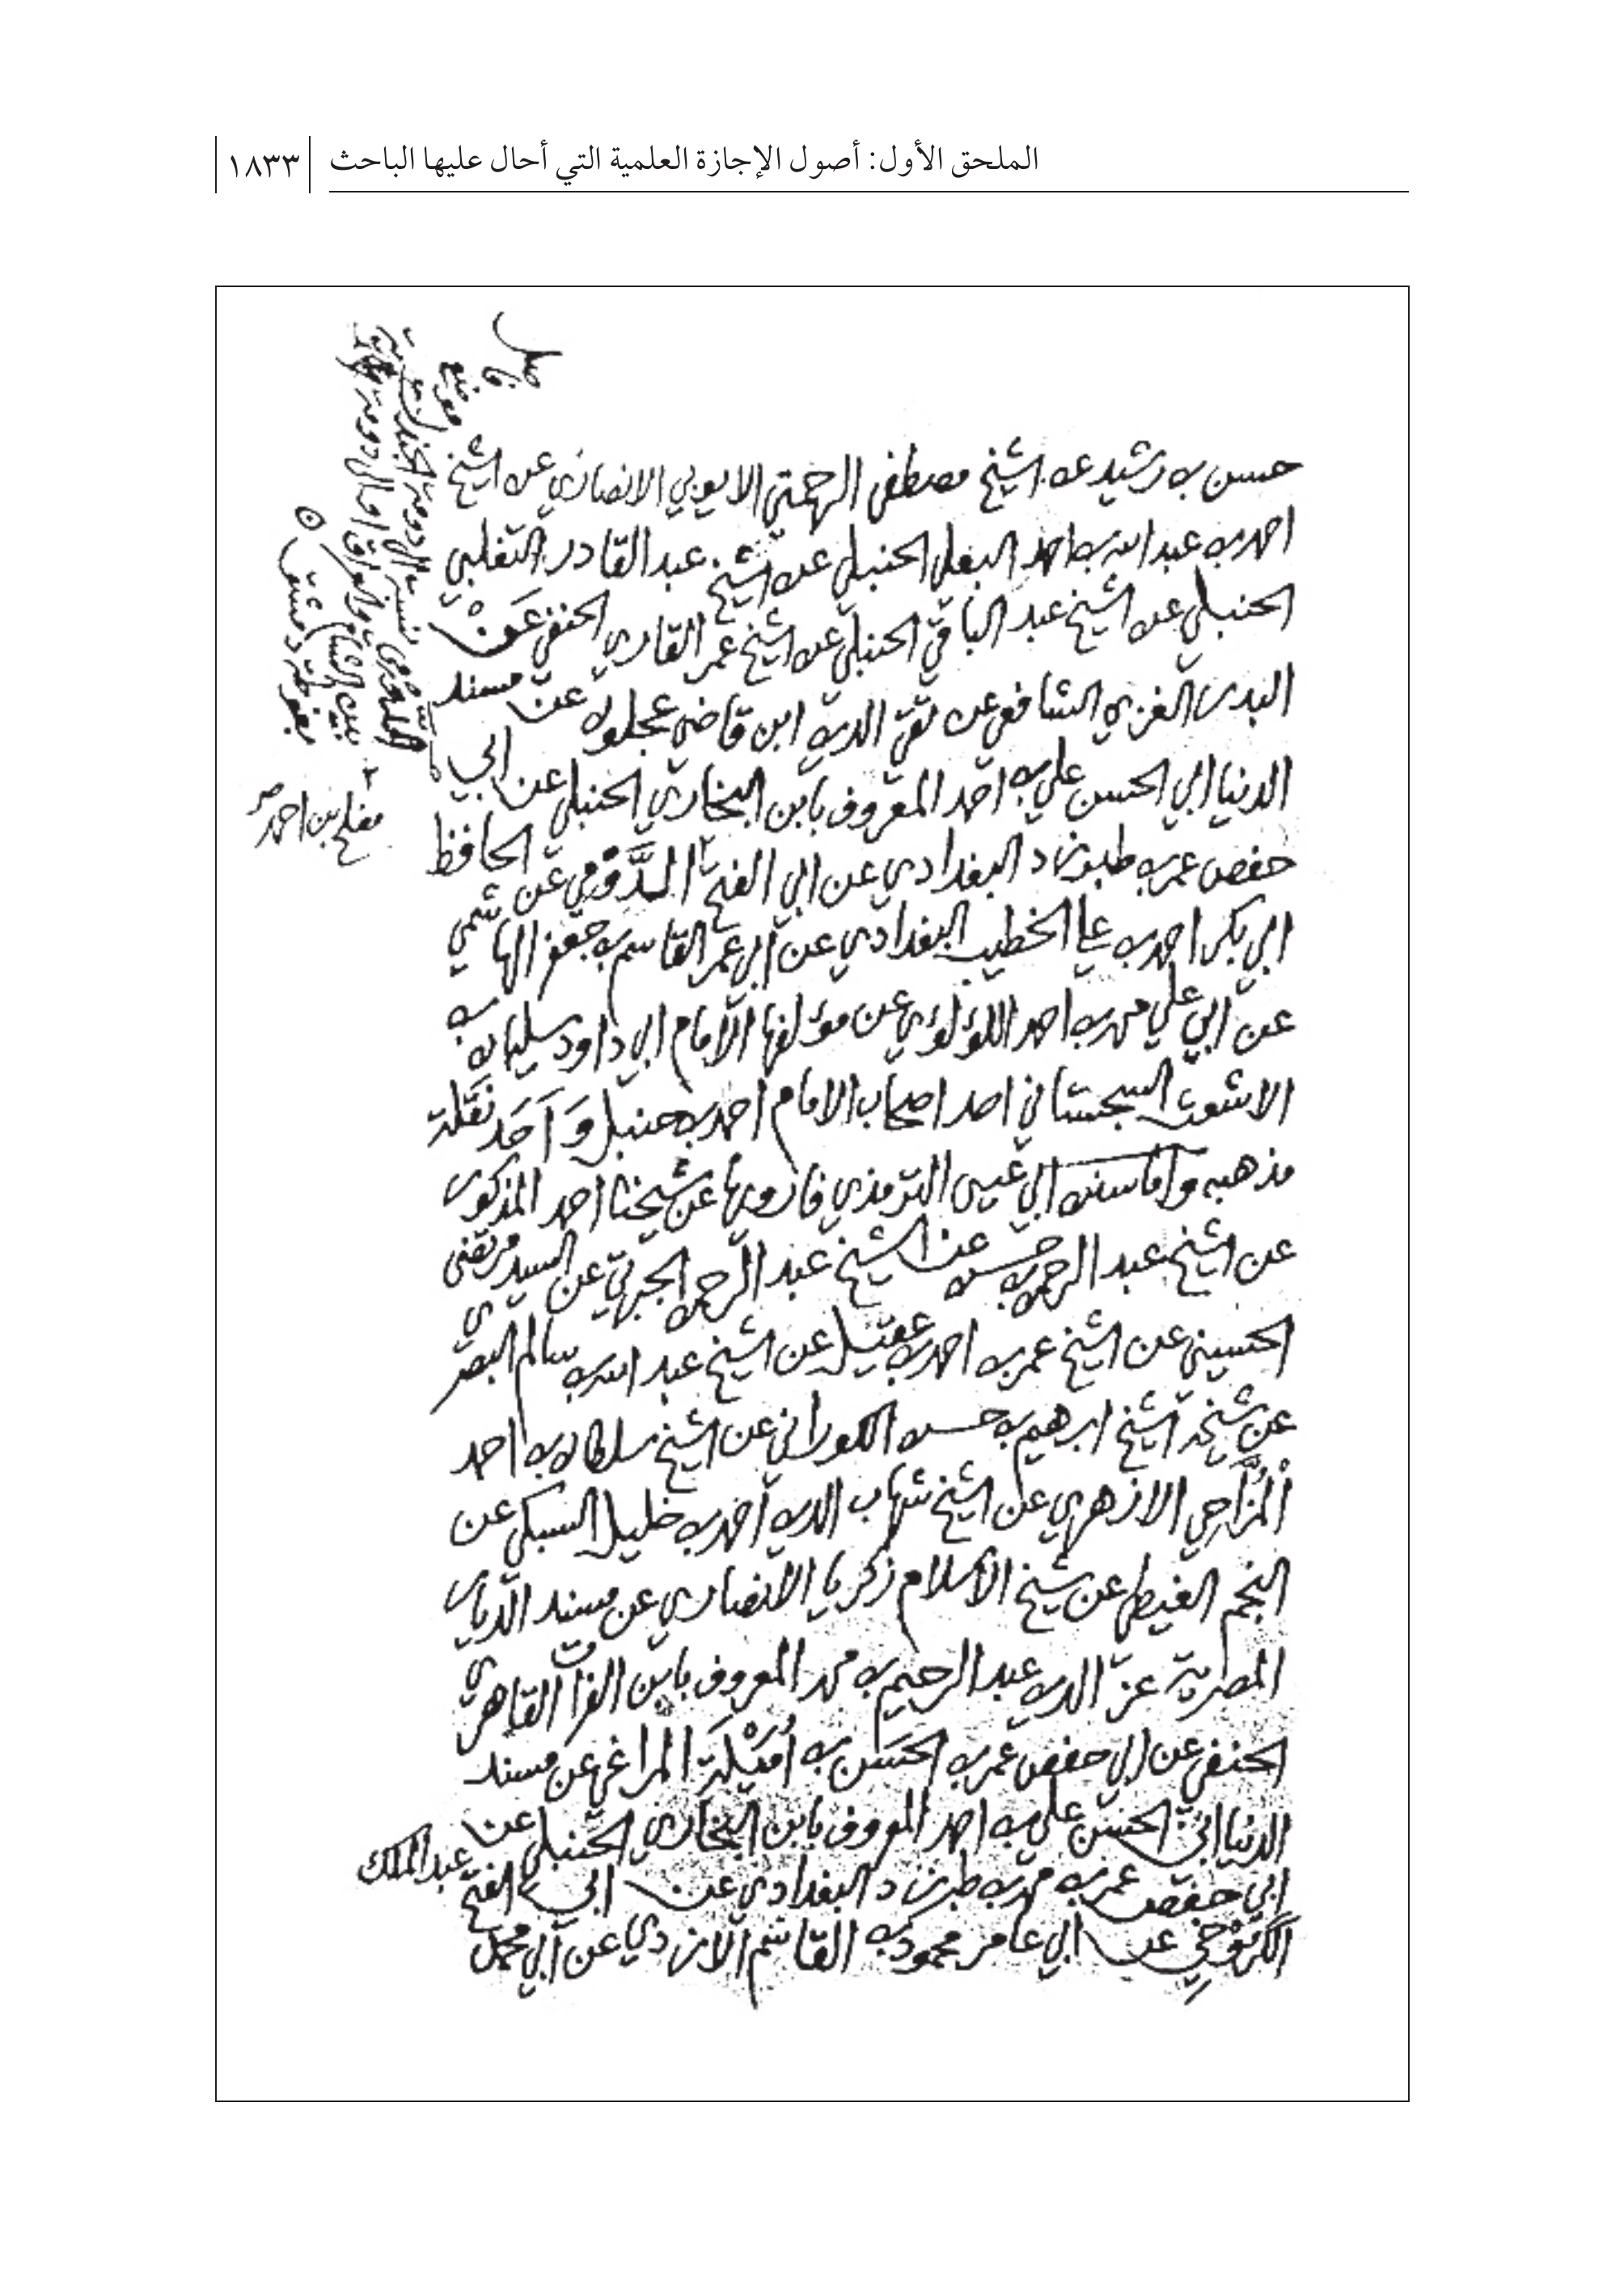 الملحق الأول: أصول الإجازة العلمية التي أحال عليها الباحث
١٨٣٣
حسن بن رشيد عن الشيخ مصطفى الرحمتي الايوبي الانصاري عن الشيخ
احمد بن عبد الله بن احمد البعلي الحنبلي عن الشيخ عبد القادر التغلبي
الحنبلي عن الشيخ عبد الباقي الحنبلي عن الشيخ عمر القاري الحنفي عَنْ
البدر الغزي الشافعي عن تقي الدين ابن قاضي عجلون عن مسند
الدنيا ابي الحسن علي بن احمد المعروف بابن البخاري الحنبلي عن ابي
حفص عمر بن طبرزد البغدادي عن ابي الفتح ٢ الدَّوْمي عن الحافظ
ابي بكر احمد بن علي الخطيب البغدادي عن ابي عمر القاسم بن جعفر الهاشمي
عن ابي علي محمد بن احمد اللؤلؤي عن مؤلفها الامام ابي داود سليمان بن
الاشعث السجستاني احد اصحاب الامام احمد بن حنبل وَاَحَد نَقَلة
مذهبه واما سنن ابي عيسى الترمذي فارويها عن شيخنا احمد المذكور
عن الشيخ عبد الرحمن بن حسن عن الشيخ عبد الرحمن الجبرتي عن السيد مرتضى
الحسيني عن الشيخ عمر بن احمد بن عقيل عن الشيخ عبد الله بن سالم البصري
عن شيخه الشيخ ابرهيم بن حسن الكوراني عن الشيخ سلطان بن احمد
المَزَّاحي الازهري عن الشيخ شهاب الدين احمد بن خليل السبكي عن
النجم الغيطي عن شيخ الاسلام زكريا الانصاري عن مسند الديار
المصرية عز الدين عبد الرحيم بن محمد المعروف بابن الفرات القاهري
الحنفي عن ابي حفص عمر بن الحسَن بن اُمَيْلَة المراغي عن مسند
الدنيا ابي الحسن علي بن احمد المعروف بابن البخاري الحنبلي عن
ابي حفص عمر بن محمد بن طبرزد البغدادي عن ابي الفتح عبد الملك
الكَرُوْخي عن ابي عامر محمود بن القاسم الازدي عن ابي محمد
٢
مفلح بن احمد صح